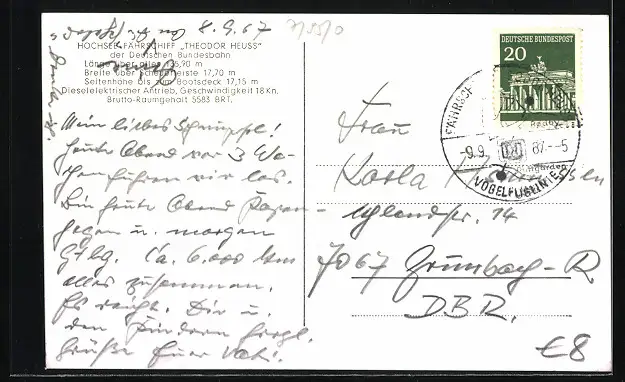 8.9.67
HOCHSEE-FÄHRSCHIFF „THEODOR HEUSS"
der Deutschen Bundesbahn
Länge über alles 135,90 m
Breite über Scheuerleiste 17,70 m
Seitenhöhe bis zum Bootsdeck 17,15 m
Dieselelektrischer Antrieb, Geschwindigkeit 18 Kn.
Brutto-Raumgehalt 5583 BRT.
Mein liebes Schnuppel!
Heute Abend vor 3 Wo-
chen fuhren wir los.
Bin heute Abend Kopen-
hagen u. morgen
Gtbg. Ca. 6.000 km
alles zusammen.
Es reicht. Dir u.
den Kindern herzl.
Grüße Euer Vati.
DEUTSCHE BUNDESPOST
20
FÄHRSCH
-9.9. 67.--5
VOGELFLUGLINIE
Frau
Karla
Uhlandstr. 14
7067 Grunbach-R
DBR.
€8